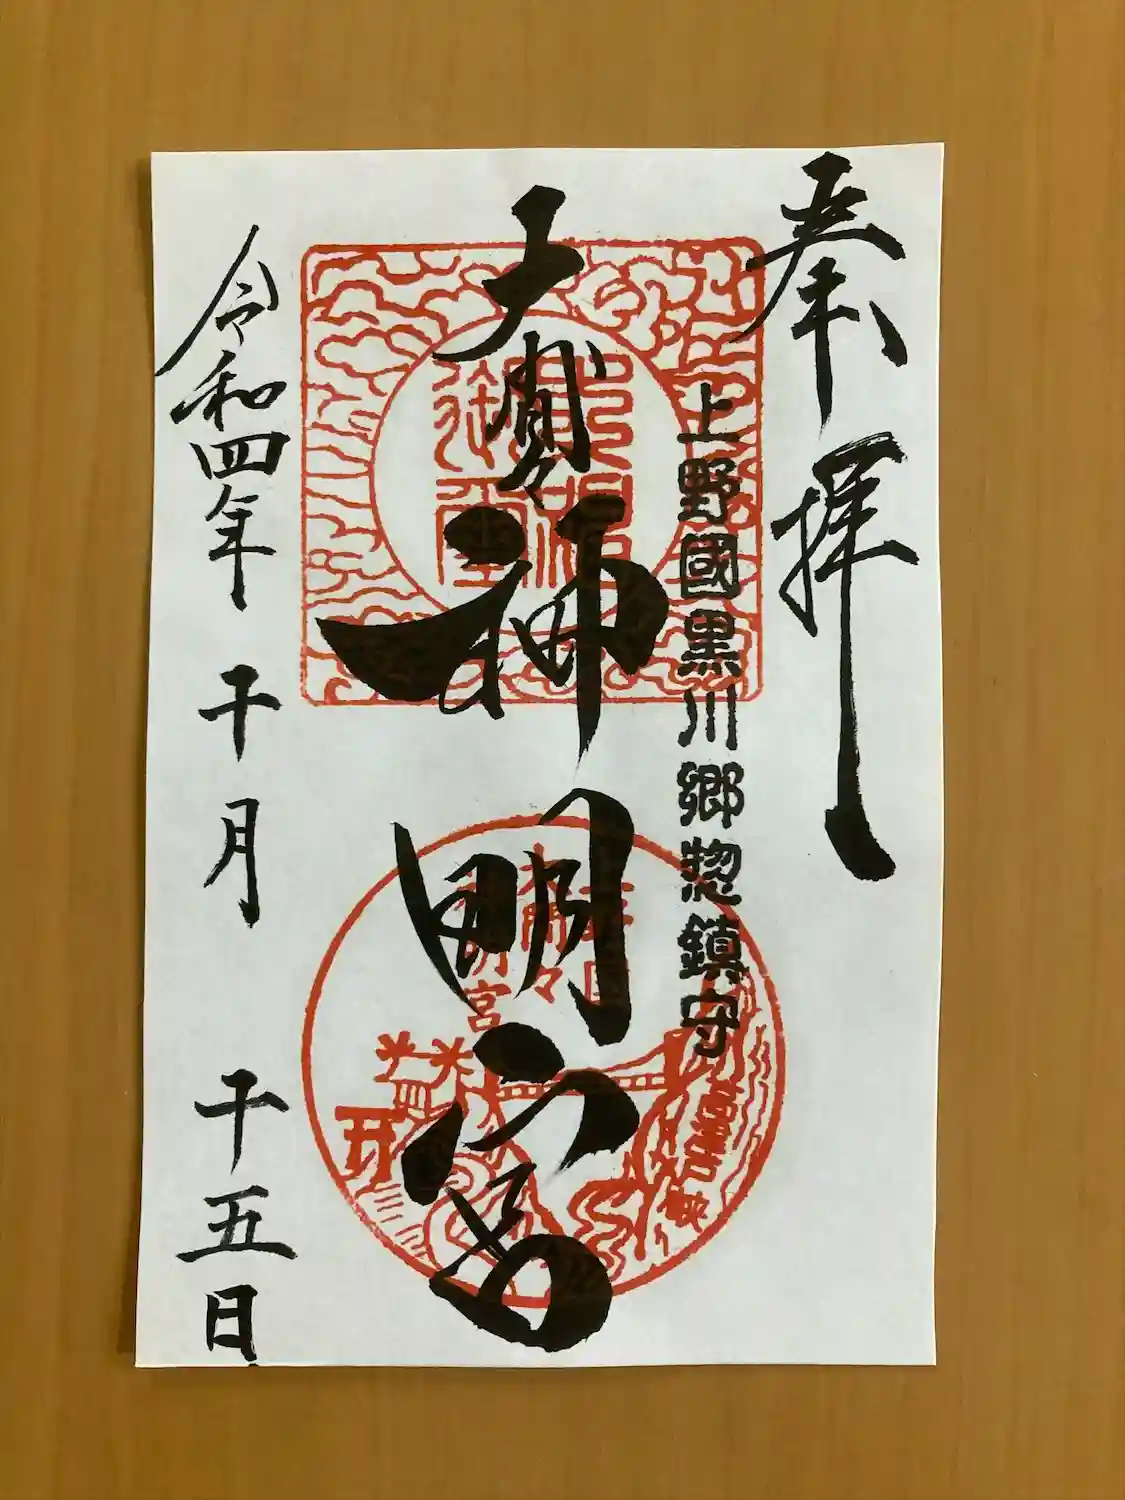 奉拝
上野國黒川郷惣鎮守
大間々
神明宮
令和四年 十月 十五日